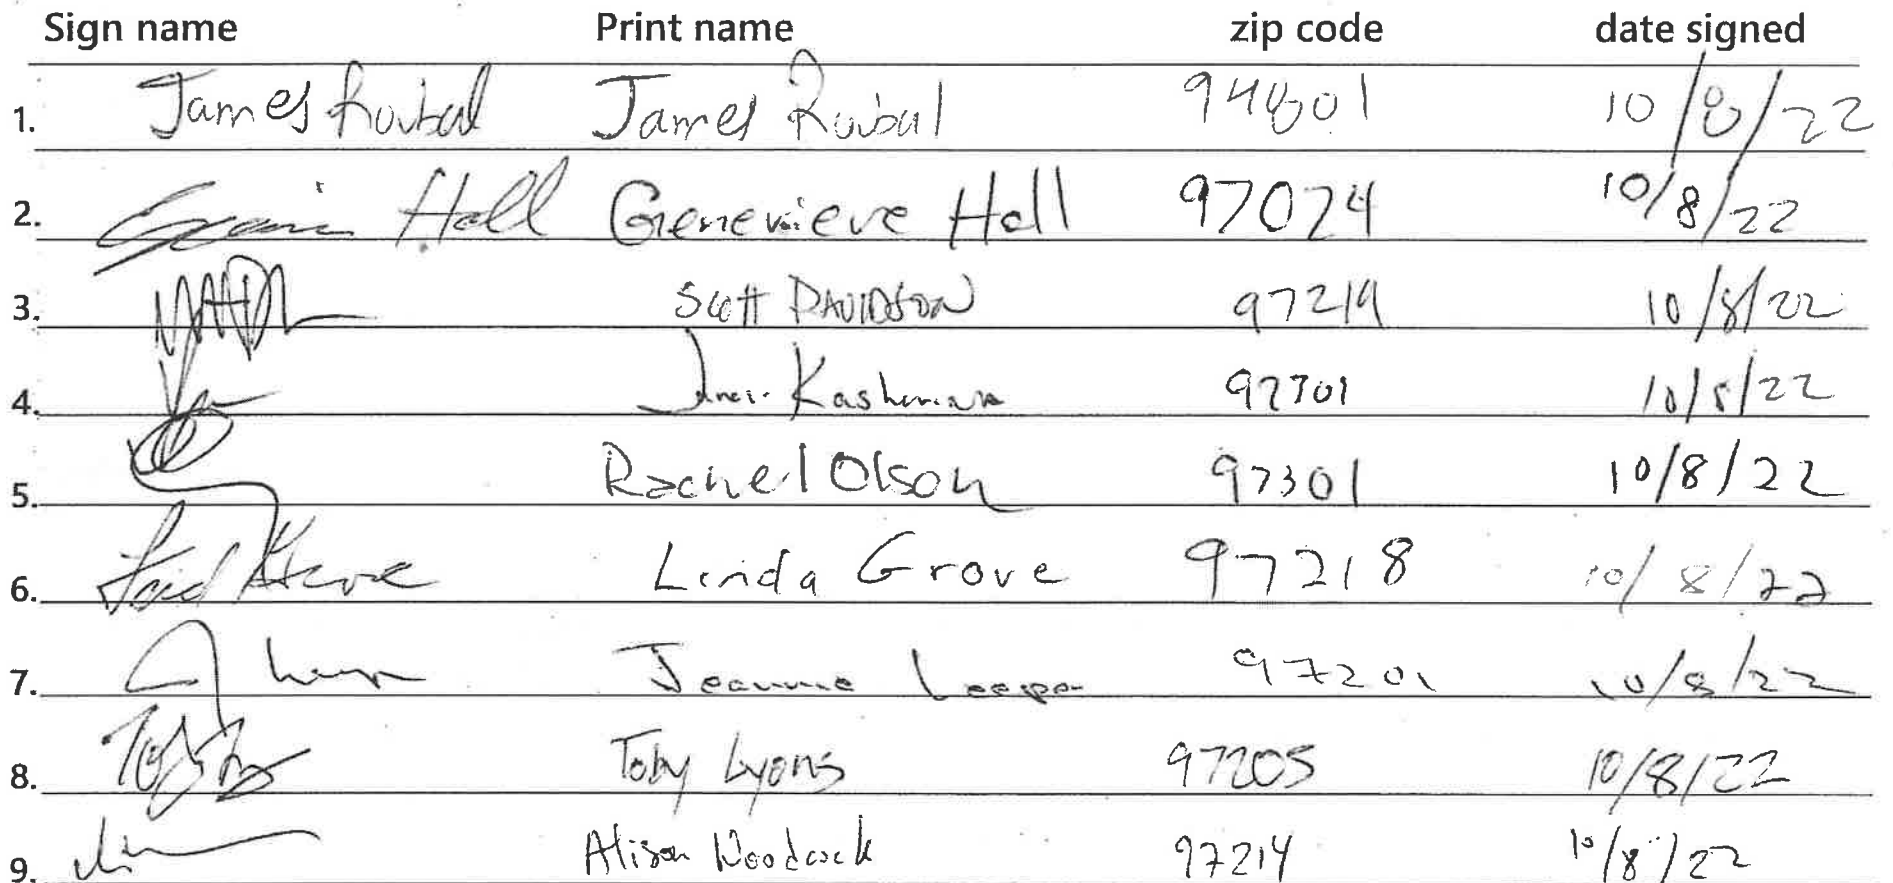 Sign name Print name zip code date signed
1. James Roubal James Roubal 94801 10/8/22
2. Hall Genevieve Hall 97024 10/8/22
3. Scott DAVIDSON 97219 10/8/22
4. Kashmar 97301 10/8/22
5. Rachel Olson 97301 10/8/22
6. Linda Grove Linda Grove 97218 10/8/22
7. Jeannie Leeper 97201 10/8/22
8. Toby Lyons 97205 10/8/22
9. Alison Woodcock 97214 10/8/22